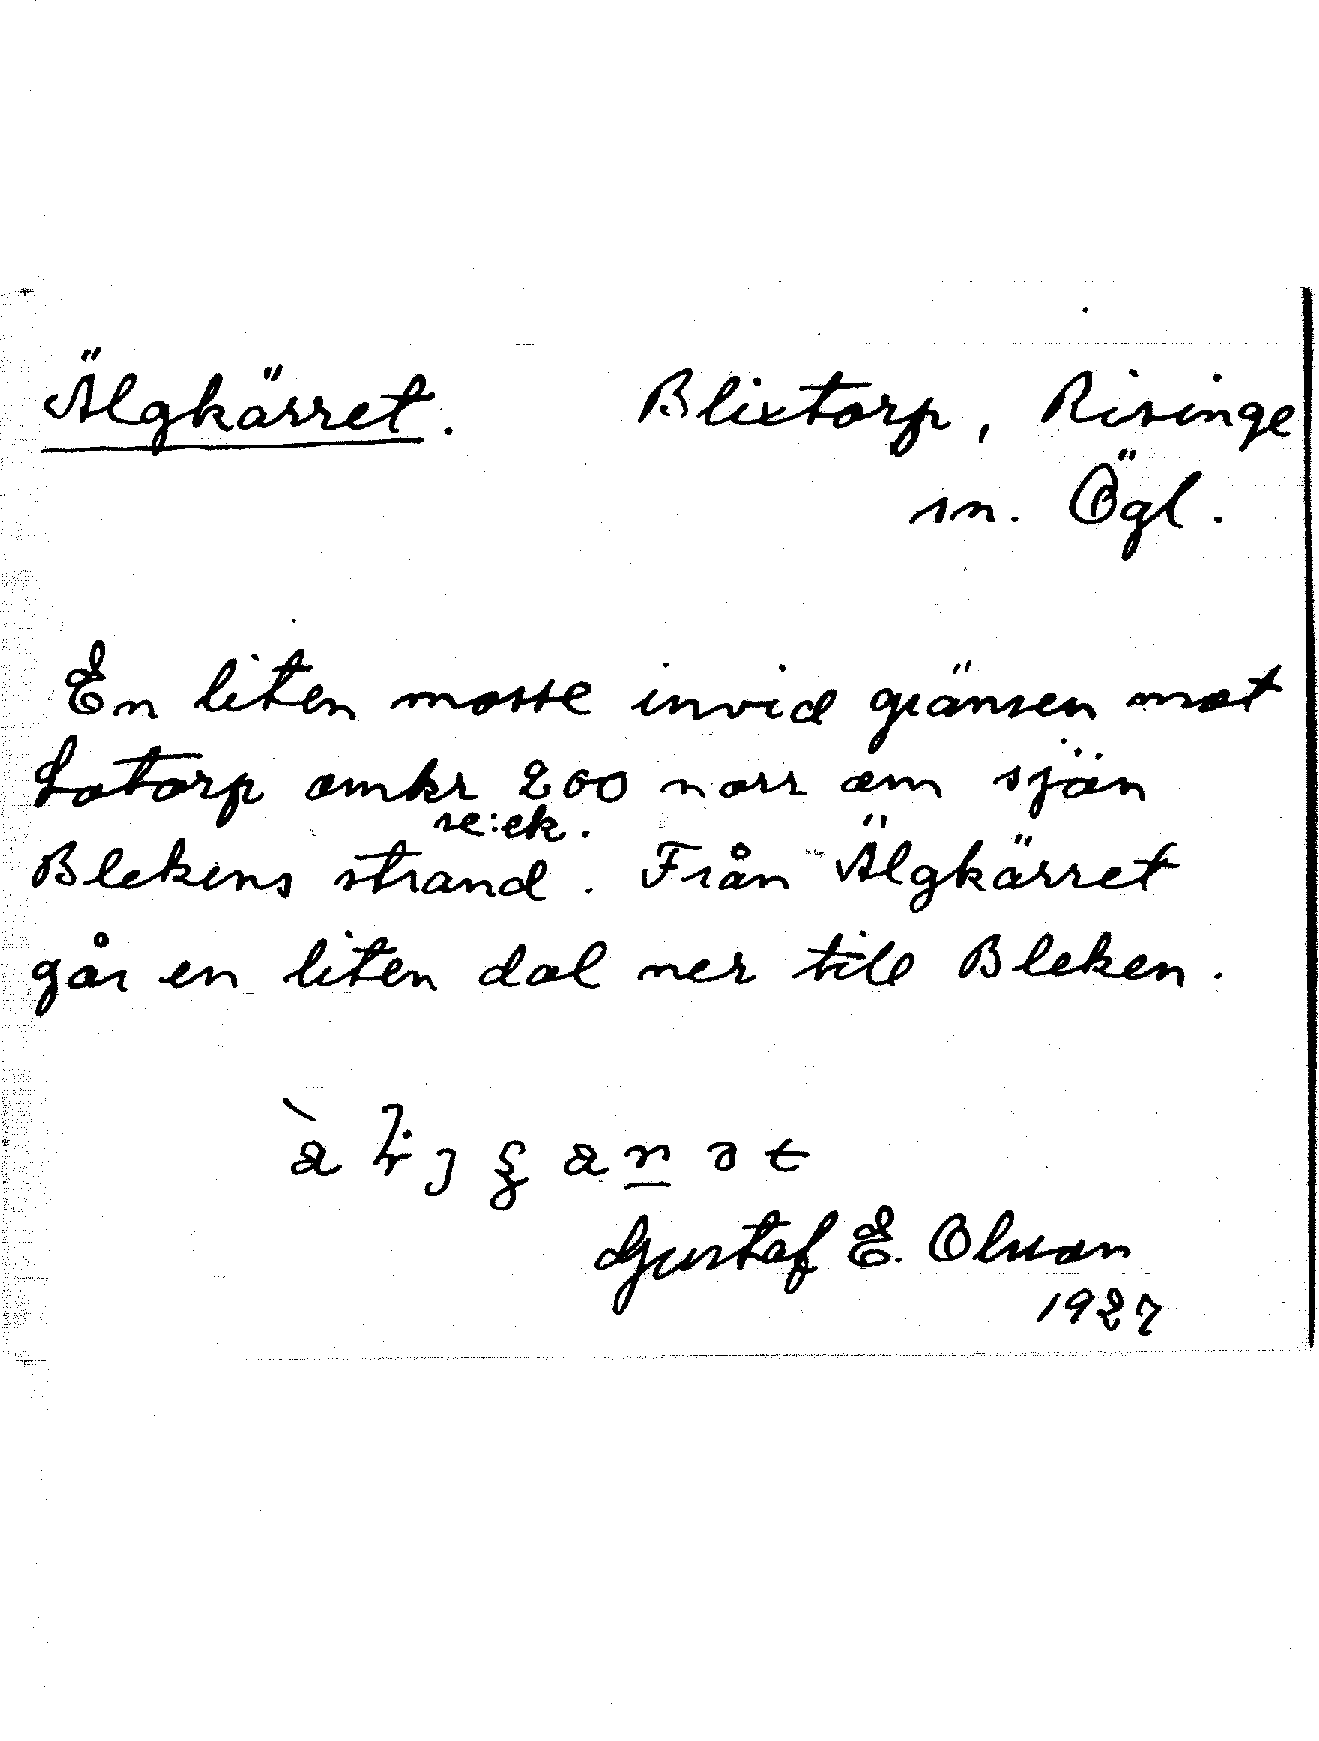 Älgkärret. Blixtorp, Risinge
sn. Ögl.
En liten mosse invid gränsen mot
Lotorp omkr 200 norr om sjön
se:ek.
Blekens strand. Från Älgkärret
går en liten dal ner till Bleken.
Gustaf E. Olsson
1927